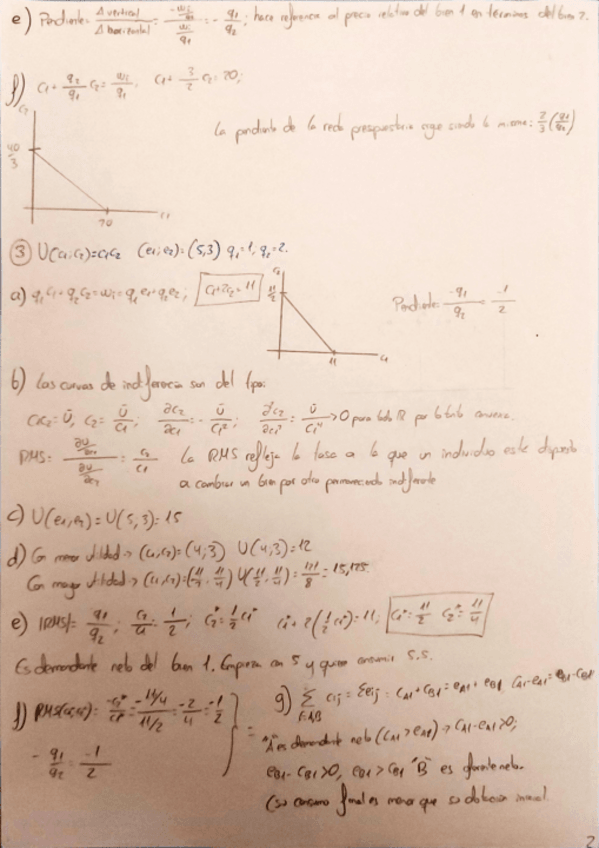 e) Pendiente: Δ vertical / Δ horizontal = (-wi/q2) / (wi/q1) = - q1/q2; hace referencia al precio relativo del bien 1 en términos del bien 2.
f) c1 + q2/q1 c2 = wi/q1; c1 + 3/2 c2 = 20;
c2
La pendiente de la recta presupuestaria sigue siendo la misma: 2/3 (q1/q2)
40/3
20
c1
③ U(c1;c2)=c1c2 (e1;e2)=(5,3) q1=1, q2=2.
a) q1c1+q2c2=wi=q1e1+q2e2; c1+2c2=11
c2
11/2
11
c1
Pendiente: -q1/q2 = -1/2
b) Las curvas de indiferencia son del tipo:
c1c2=Ū, c2=Ū/c1; ∂c2/∂c1=-Ū/c1²; ∂²c2/∂c1²=Ū/c1⁴>0 para todo R por lo tanto convexa.
RMS= (∂U/∂c1)/(∂U/∂c2) = c2/c1 La RMS refleja la tasa a la que un individuo está dispuesto
a cambiar un bien por otro permaneciendo indiferente
c) U(e1,e2)=U(5,3)=15
d) Con menor utilidad → (c1,c2)=(4;3) U(4;3)=12
Con mayor utilidad → (c1,c2)=(11/2, 11/4) U(11/2, 11/4)=121/8=15,125
e) |RMS|= q1/q2; c2/c1=1/2; c2*=1/2 c1* c1*+2(1/2 c1*)=11; c1*=11/2 c2*=11/4
Es demandante neto del bien 1. Empieza con 5 y quiere consumir 5.5.
f) RMS(c1*,c2*)= -c2*/c1* = (-11/4)/(11/2) = -2/4 = -1/2
- q1/q2 = -1/2
=
g) Σ i=A,B cij = Σeij = cA1+cB1=eA1+eB1 cA1-eA1=eB1-cB1
"A" es demandante neto (cA1>eA1) → cA1-eA1>0;
eB1-cB1>0, eB1>cB1 "B" es oferente neto.
(su consumo final es menor que su dotación inicial.
2